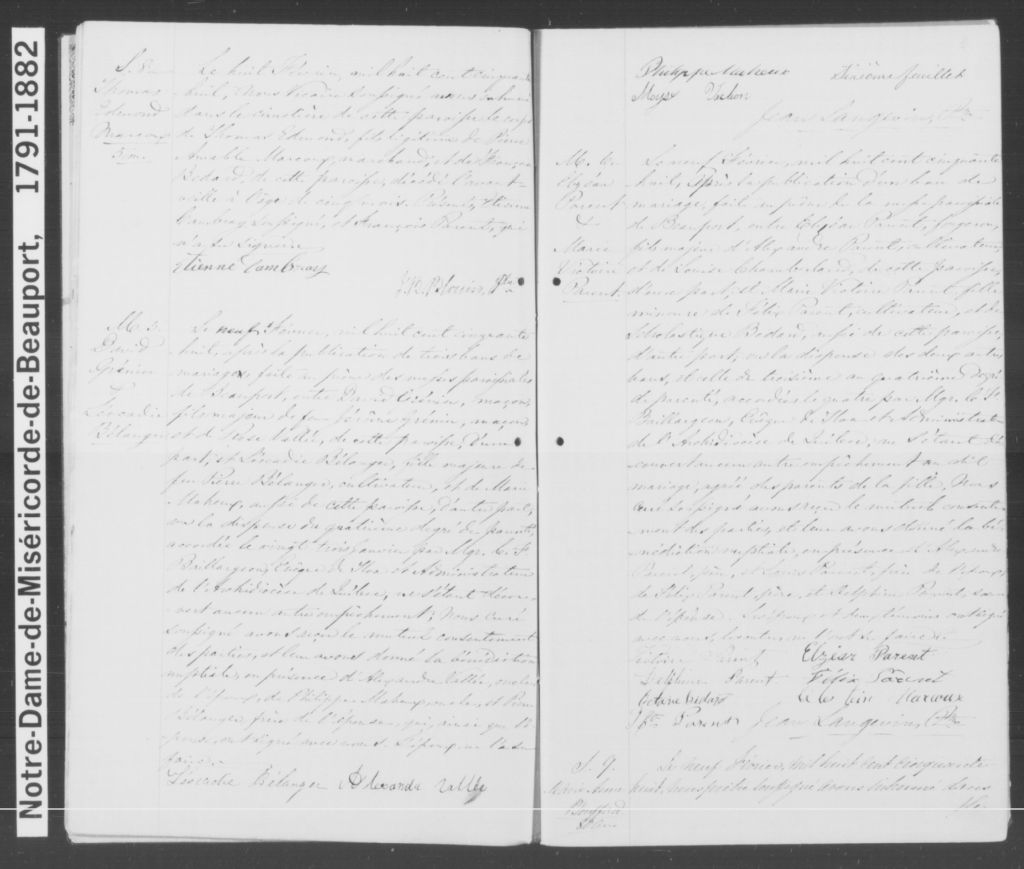 Notre-Dame-de-Miséricorde-de-Beauport, 1791-1882
S. 8
Thomas
Edmond
Marcoux
5 m.
Le huit Février, mil huit cent cinquante
huit, Nous Vicaire soussigné avons inhumé
dans le cimetière de cette paroisse le corps
de Thomas Edmond, fils légitime de Pierre
Amable Marcoux, marchand, et de François
Bedard de cette paroisse, décédé l'avant-
veille à l'âge de cinq mois. Présents, Etienne
Tambray soussigné, et François Parent, qui
n'a su signer
Etienne Tambray
J.B. Blouin, Ptre
M. 5.
David
Grénier
&
Léocadie
Bélanger
Le neuf Février, mil huit cent cinquante
huit, après la publication de trois bans de
mariage, faite au prône des messes paroissiales
de Beauport, entre David Grénier, maçon,
fils majeur de feu Jérémie Grénier, maçon,
et de Rose Vallée, de cette paroisse, d'une
part, et Léocadie Bélanger, fille majeure de
feu Pierre Bélanger, cultivateur, et de Marie
Maheux, aussi de cette paroisse, d'autre part,
vu la dispense du quatrième degré de parenté,
accordée le vingt trois Janvier par Mgr. C. F.
Baillargeon, Evêque de Tloa et Administrateur
de l'Archidiocèse de Québec, ne s'étant décou-
vert aucun autre empêchement; Nous curé
soussigné avons reçu le mutuel consentement
des parties, et leur avons donné la bénédiction
nuptiale, en présence d'Alexandre Vallée, oncle
de l'époux, de Philippe Maheux, oncle, et Pierre
Bélanger, frère de l'épouse, qui, ainsi que l'é-
pouse, ont signé avec nous. L'époux ne l'a su
faire.
Léocadie Bélanger Alexandre Vallée
Philippe Maheux Dixième feuillet
Moyse Vachon
Jean Langevin, Ptre
M. 6.
Elzéar
Parent
&
Marie
Victoire
Parent
Le neuf Février, mil huit cent cinquante
huit, après la publication d'un ban de
mariage, faite au prône de la messe paroissiale
de Beauport, entre Elzéar Parent, forgeron,
fils majeur d'Alexandre Parent, cultivateur,
et de Louise Chamberland, de cette paroisse,
d'une part, et Marie Victoire Parent, fille
mineure de Félix Parent, cultivateur, et de
Scholastique Bedard, aussi de cette paroisse,
d'autre part, vu la dispense des deux autres
bans, et celle du troisième au quatrième degré
de parenté, accordées le quatre par Mgr. C. F.
Baillargeon, Evêque de Tloa et Administrateur
de l'Archidiocèse de Québec, ne s'étant dé-
couvert aucun autre empêchement au dit
mariage, agréé des parents de la fille, Nous
curé soussigné avons reçu le mutuel consente-
ment des parties, et leur avons donné la bé-
nédiction nuptiale, en présence d'Alexandre
Parent, père, et Louis Parent, frère de l'époux,
de Félix Parent, père, et Delphine Parent, sœur
de l'épouse. Les époux et deux témoins ont signé
avec nous, les autres ne l'ont su faire.
Victoire Parent Elzéar Parent
Delphine Parent Félix Parent
Octave Bedard Célestin Marcoux
Parent Jean Langevin, Ptre
S. 9.
Marie Anne
Le neuf Février, mil huit cent cinquante
huit, nous prêtre soussigné avons inhumé dans